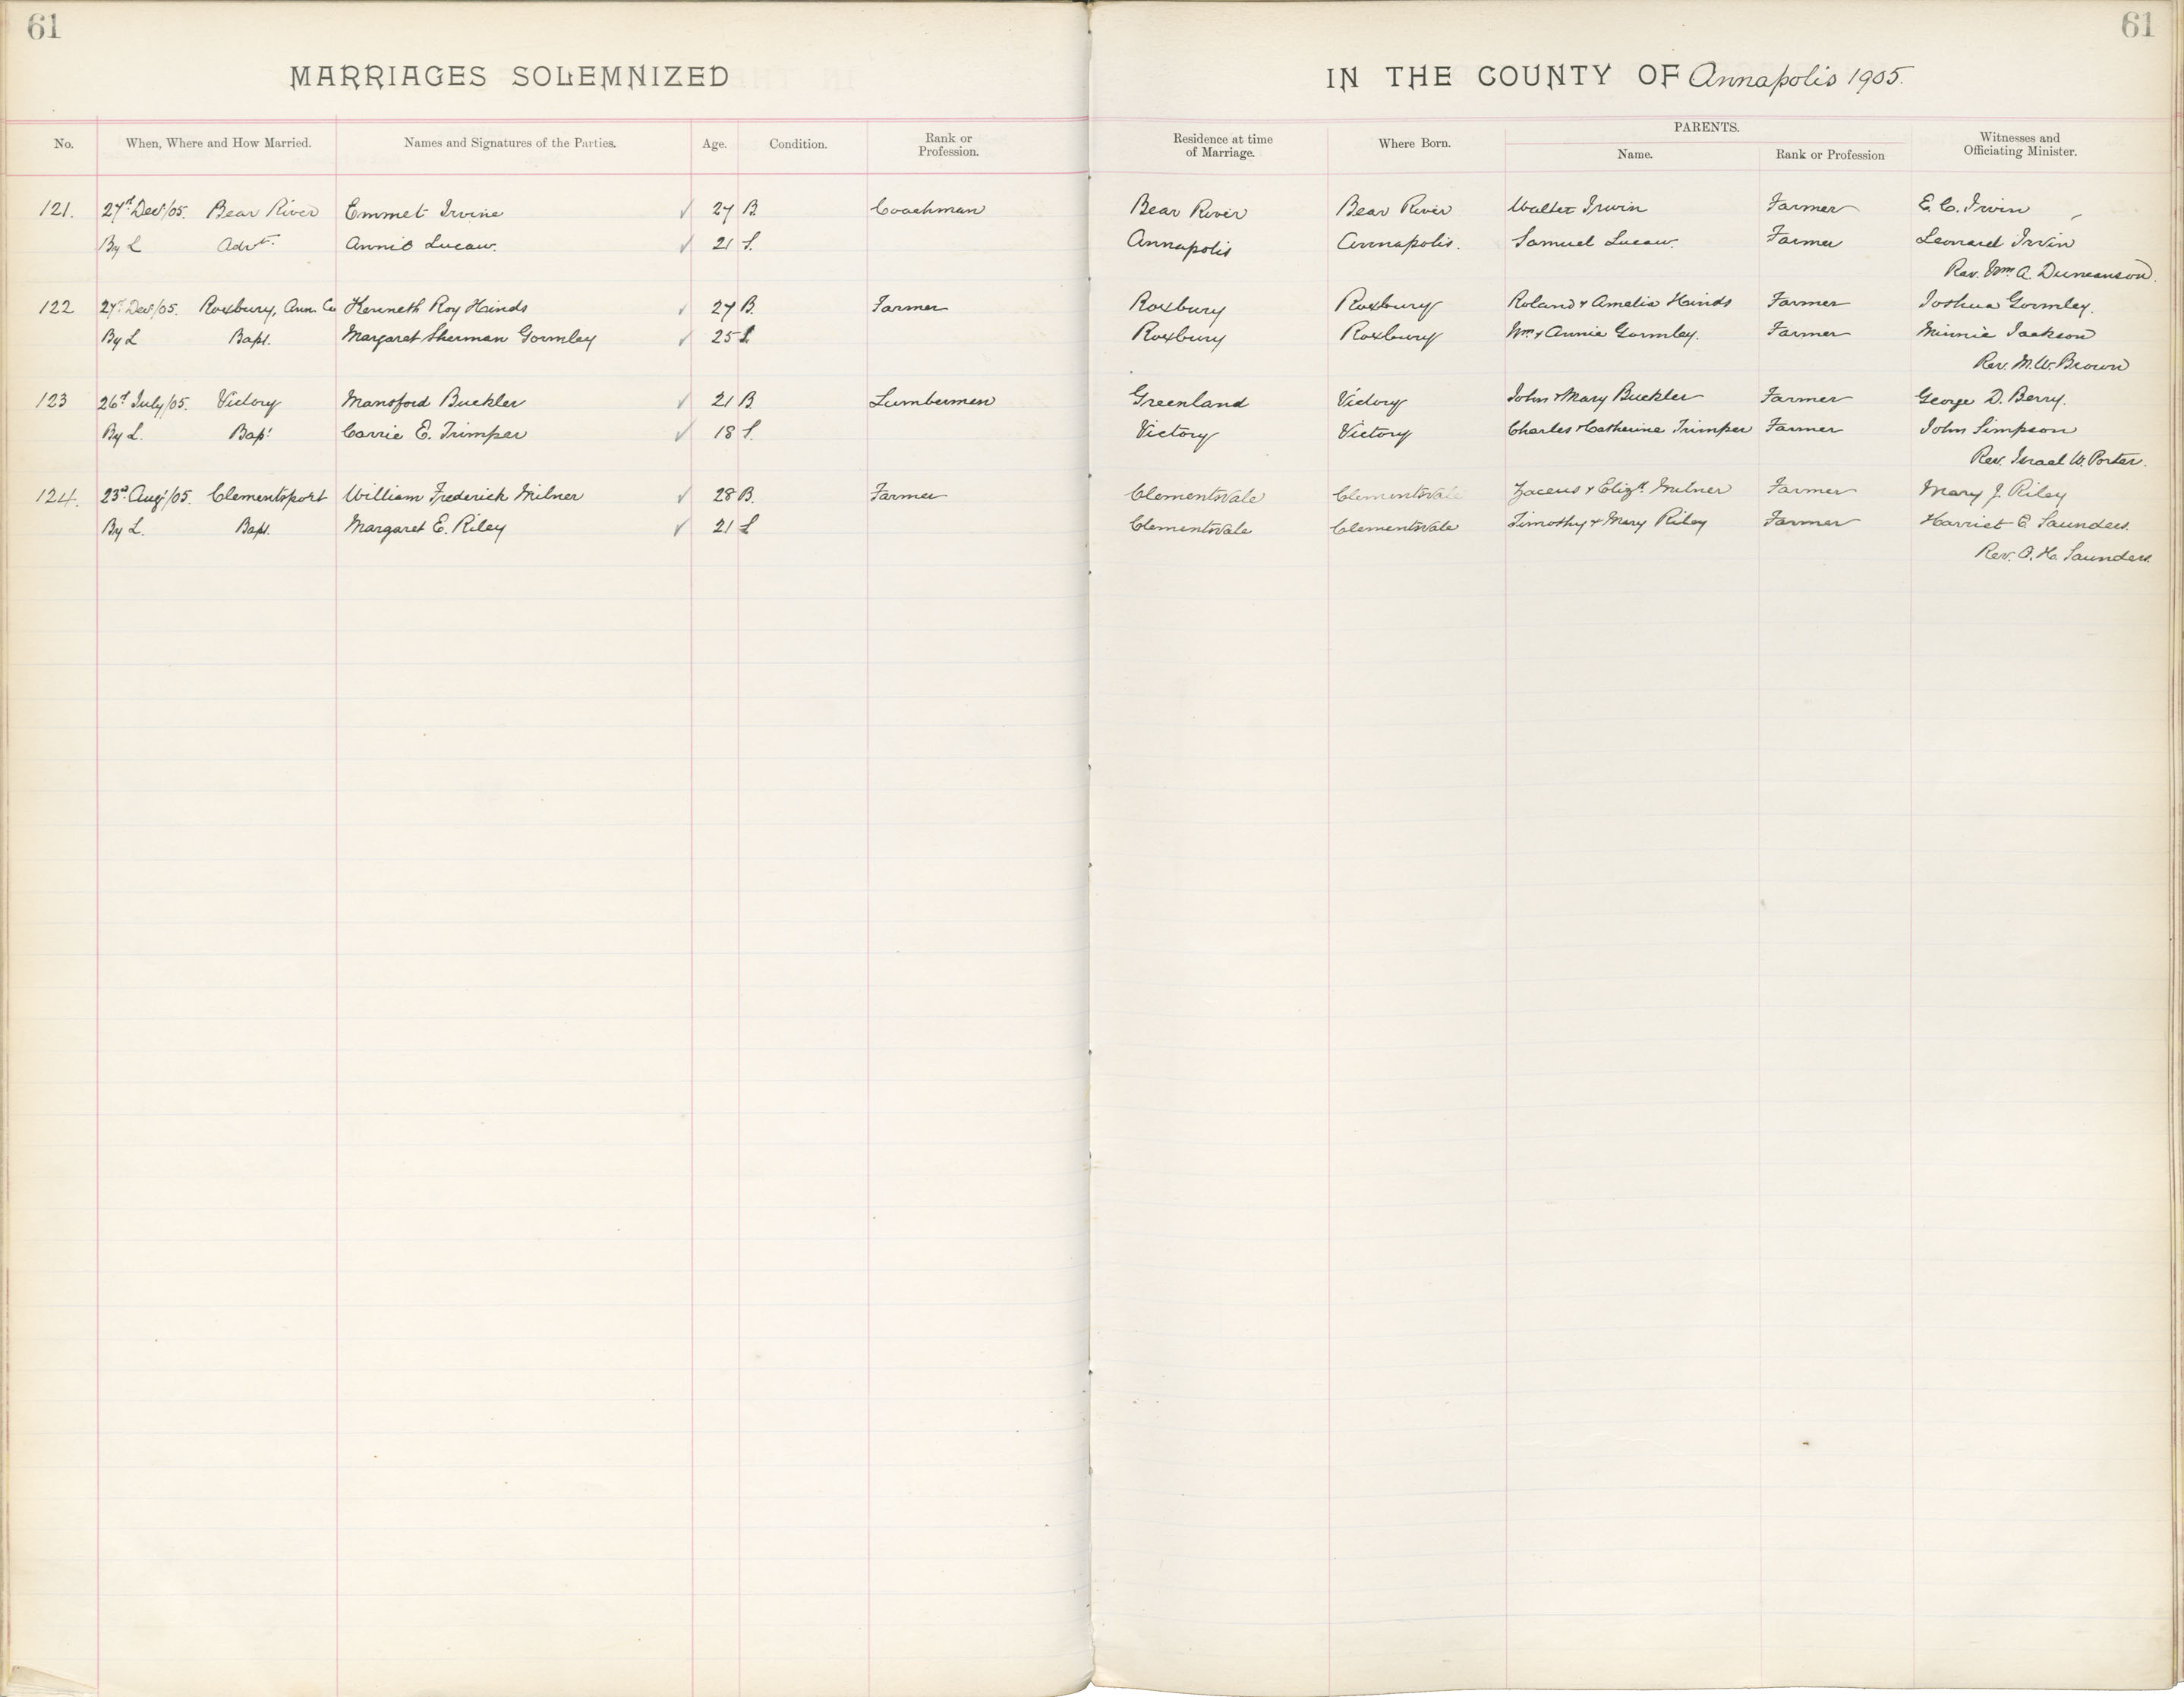 61
61
MARRIAGES SOLEMNIZED IN THE COUNTY OF Annapolis 1905.
No. When, Where and How Married. Names and Signatures of the Parties. Age. Condition. Rank or Profession. Residence at time of Marriage. Where Born. PARENTS. Name. Rank or Profession Witnesses and Officiating Minister.
121. 27th Dec/05. Bear River Emmet Irvine ✓ 27 B. Coachman Bear River Bear River Walter Irwin Farmer E. C. Irvin
By L Advt. Annie Lucaw. ✓ 21 S. Annapolis Annapolis. Samuel Lucaw. Farmer Leonard Irvin
Rev. Wm A. Duncanson.
122 27th Dec/05. Roxbury, Ann. Co Kenneth Roy Hinds ✓ 27 B. Farmer Roxbury Roxbury Roland & Amelia Hinds Farmer Joshua Gormley.
By L Bapt. Margaret Sherman Gormley ✓ 25 S Roxbury Roxbury Wm & Annie Gormley. Farmer Minnie Jackson
Rev. M. W. Brown
123 26th July/05. Victory Mansford Buckler ✓ 21 B. Lumberman Greenland Victory John & Mary Buckler Farmer George D. Berry.
By L. Bapt Carrie E. Trimper ✓ 18 S. Victory Victory Charles & Catherine Trimper Farmer John Simpson
Rev. Israel W. Porter.
124. 23rd Aug/05. Clementsport William Frederick Milner ✓ 28 B. Farmer Clementsvale Clementsvale Zaceus & Elizth Milner Farmer Mary J. Riley
By L. Bapt. Margaret E. Riley ✓ 21 S Clementsvale Clementsvale Timothy & Mary Riley Farmer Harriet E. Saunders.
Rev. O. H. Saunders.